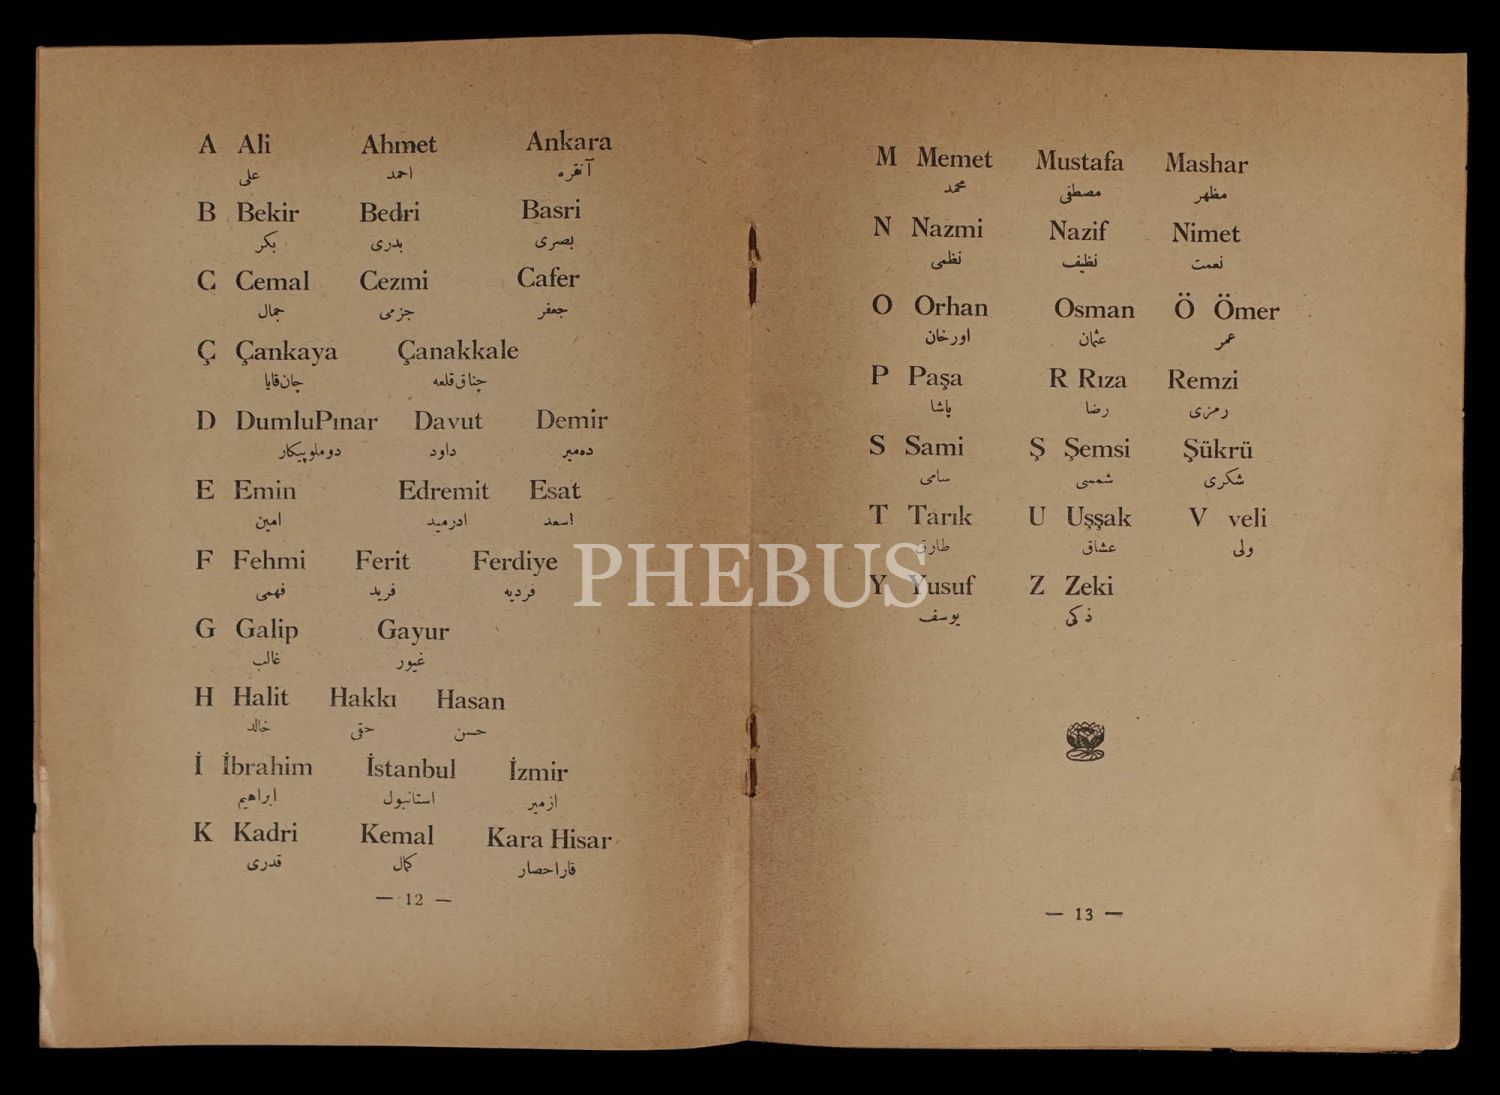 A Ali Ahmet Ankara
علی احمد آنقره
B Bekir Bedri Basri
بكر بدری بصری
C Cemal Cezmi Cafer
جمال جزمی جعفر
Ç Çankaya Çanakkale
چان‌قایا چناق‌قلعه
D DumluPınar Davut Demir
دوملوپیكار داود ده‌میر
E Emin Edremit Esat
امین ادرمید اسعد
F Fehmi Ferit Ferdiye
فهمی فرید فردیه
G Galip Gayur
غالب غیور
H Halit Hakkı Hasan
خالد حقی حسن
İ İbrahim İstanbul İzmir
ابراهیم استانبول ازمیر
K Kadri Kemal Kara Hisar
قدری كمال قاراحصار
— 12 —
M Memet Mustafa Mashar
محمد مصطفی مظهر
N Nazmi Nazif Nimet
نظمی نظیف نعمت
O Orhan Osman Ö Ömer
اورخان عثمان عمر
P Paşa R Rıza Remzi
پاشا رضا رمزی
S Sami Ş Şemsi Şükrü
سامی شمسی شكری
T Tarık U Uşşak V veli
طارق عشاق ولی
Y Yusuf Z Zeki
یوسف ذكی
— 13 —
PHEBUS